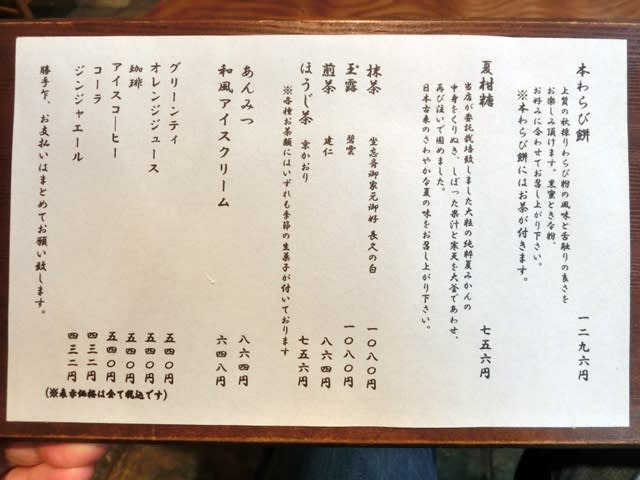 本わらび餅 一二九六円
上質の秋採りわらび粉の風味と舌触りの良さを
お楽しみ頂けます。黒蜜ときな粉、
お好みに合わせてお召し上がり下さい。
※本わらび餅にはお茶が付きます。
夏柑糖 七五六円
当店が委託栽培致しました大粒の純粋夏みかんの
中身をくりぬき、しぼった果汁と寒天を大釜であわせ、
再び注いで固めました。
日本古来のさわやかな夏の味をお召し上がり下さい。
抹茶 坐忘斎御家元御好 長久の白 一〇八〇円
玉露 碧雲 一〇八〇円
煎茶 建仁 八六四円
ほうじ茶 京かおり 七五六円
※各種お茶類にはいずれも季節の生菓子が付いております
あんみつ 八六四円
和風アイスクリーム 六四八円
グリーンティ 五四〇円
オレンジジュース 五四〇円
珈琲 五四〇円
アイスコーヒー 五四〇円
コーラ 四三二円
ジンジャエール 四三二円
勝手乍、お支払いはまとめてお願い致します。
(※表示価格は全て税込です)